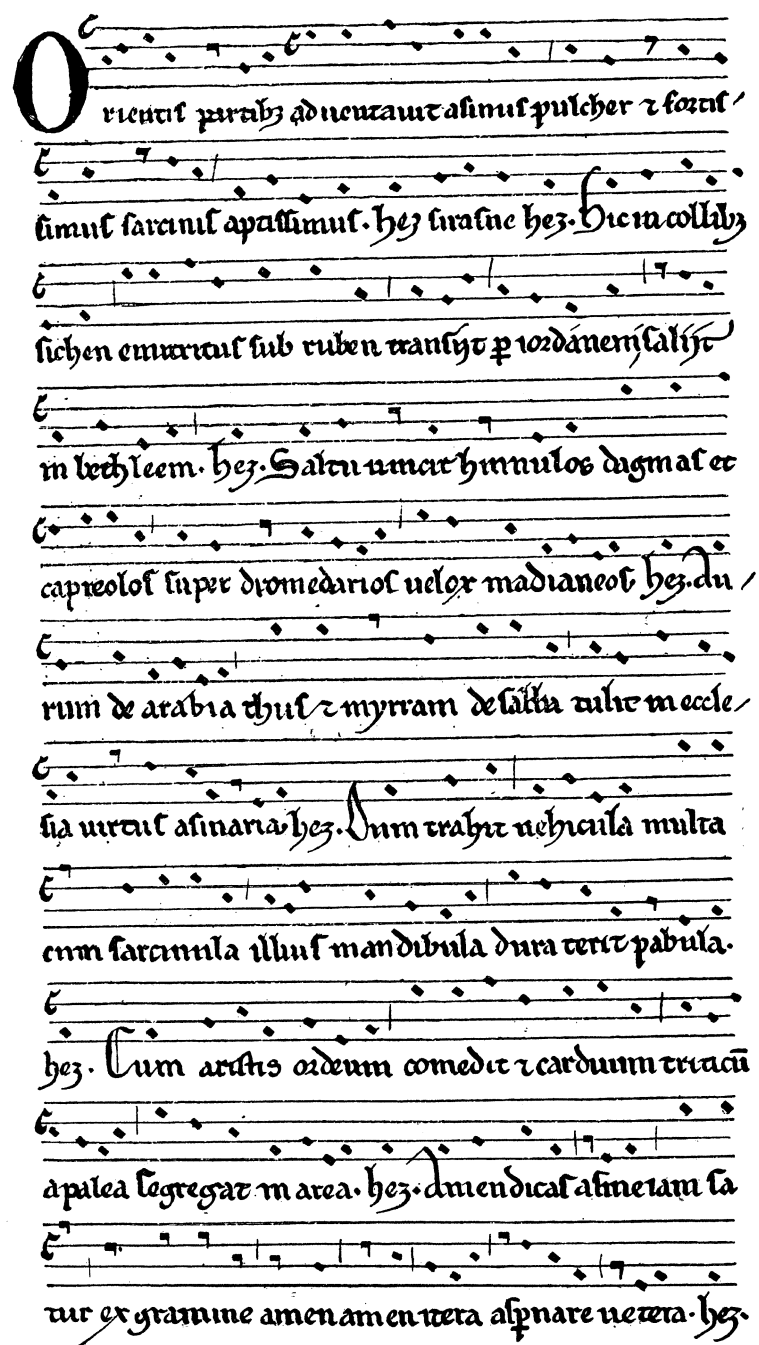 Orientis partibꝫ aduentauit asinus pulcher ⁊ fortis/
simus sarcinis aptissimus. heꝫ sirasne heꝫ. Hic in collibꝫ
sichen enutritus sub ruben transijt ꝑ iordanem salijt
in bethleem. heꝫ. Saltu uincit hinnulos dagmas et
capreolos super dromedarios uelox madianeos heꝫ. Au/
rum de arabia thus ⁊ myrram de saba tulit in eccle/
sia uirtus asinaria heꝫ. Dum trahit uehicula multa
cum sarcinula illius mandibula dura terit pabula.
heꝫ. Cum aristis ordeum comedit ⁊ carduum triticū
a palea segregat in area. heꝫ. Amen dicas asine iam sa
tur ex gramine amen amen itera asꝑnare uetera. heꝫ.